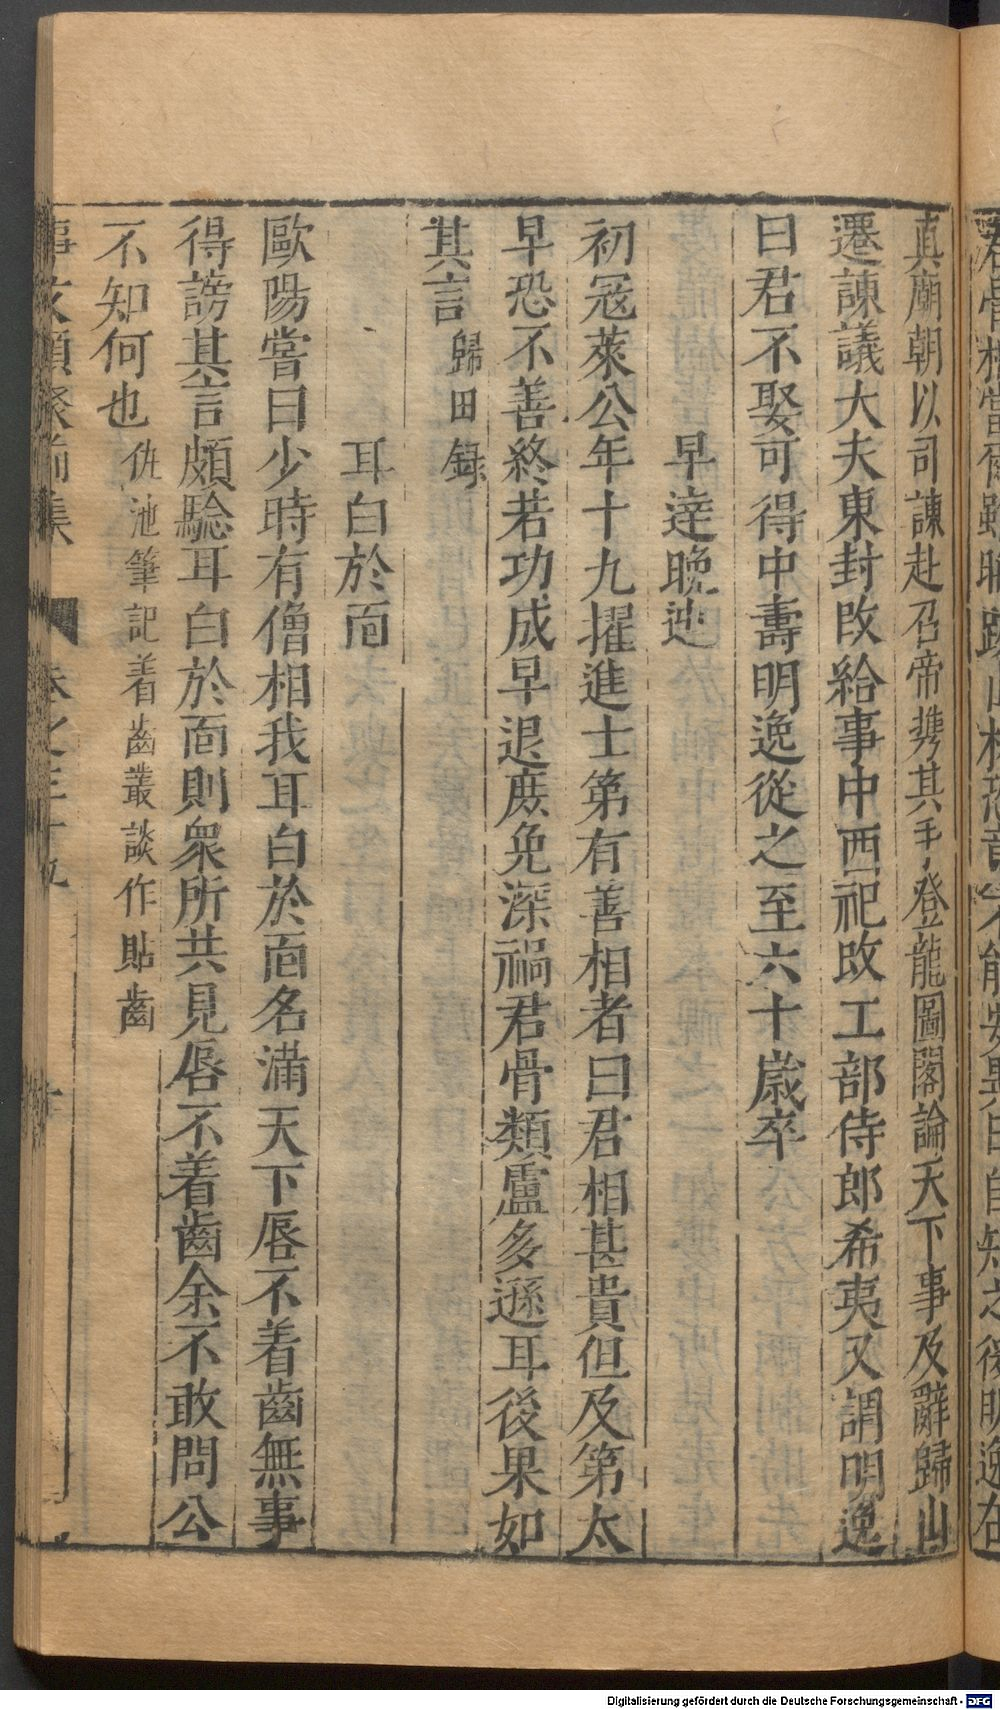 真廟朝以司諫赴召帝携其手登龍圖閣論天下事及辭歸山
遷諫議大夫東封改給事中西祀改工部侍郎希夷又謂明逸
曰君不娶可得中壽明逸從之至六十歲卒
早達晚迍
初寇萊公年十九擢進士第有善相者曰君相甚貴但及第太
早恐不善終若功成早退庶免深禍君骨類盧多遜耳後果如
其言 歸田録
耳白於面
歐陽嘗曰少時有僧相我耳白於面名滿天下唇不着齒無事
得謗其言頗驗耳白於面則衆所共見唇不着齒余不敢問公
不知何也 仇池筆記着齒叢談作貼齒
事文類聚前集 卷之三十九 十
Digitalisierung gefördert durch die Deutsche Forschungsgemeinschaft - DFG